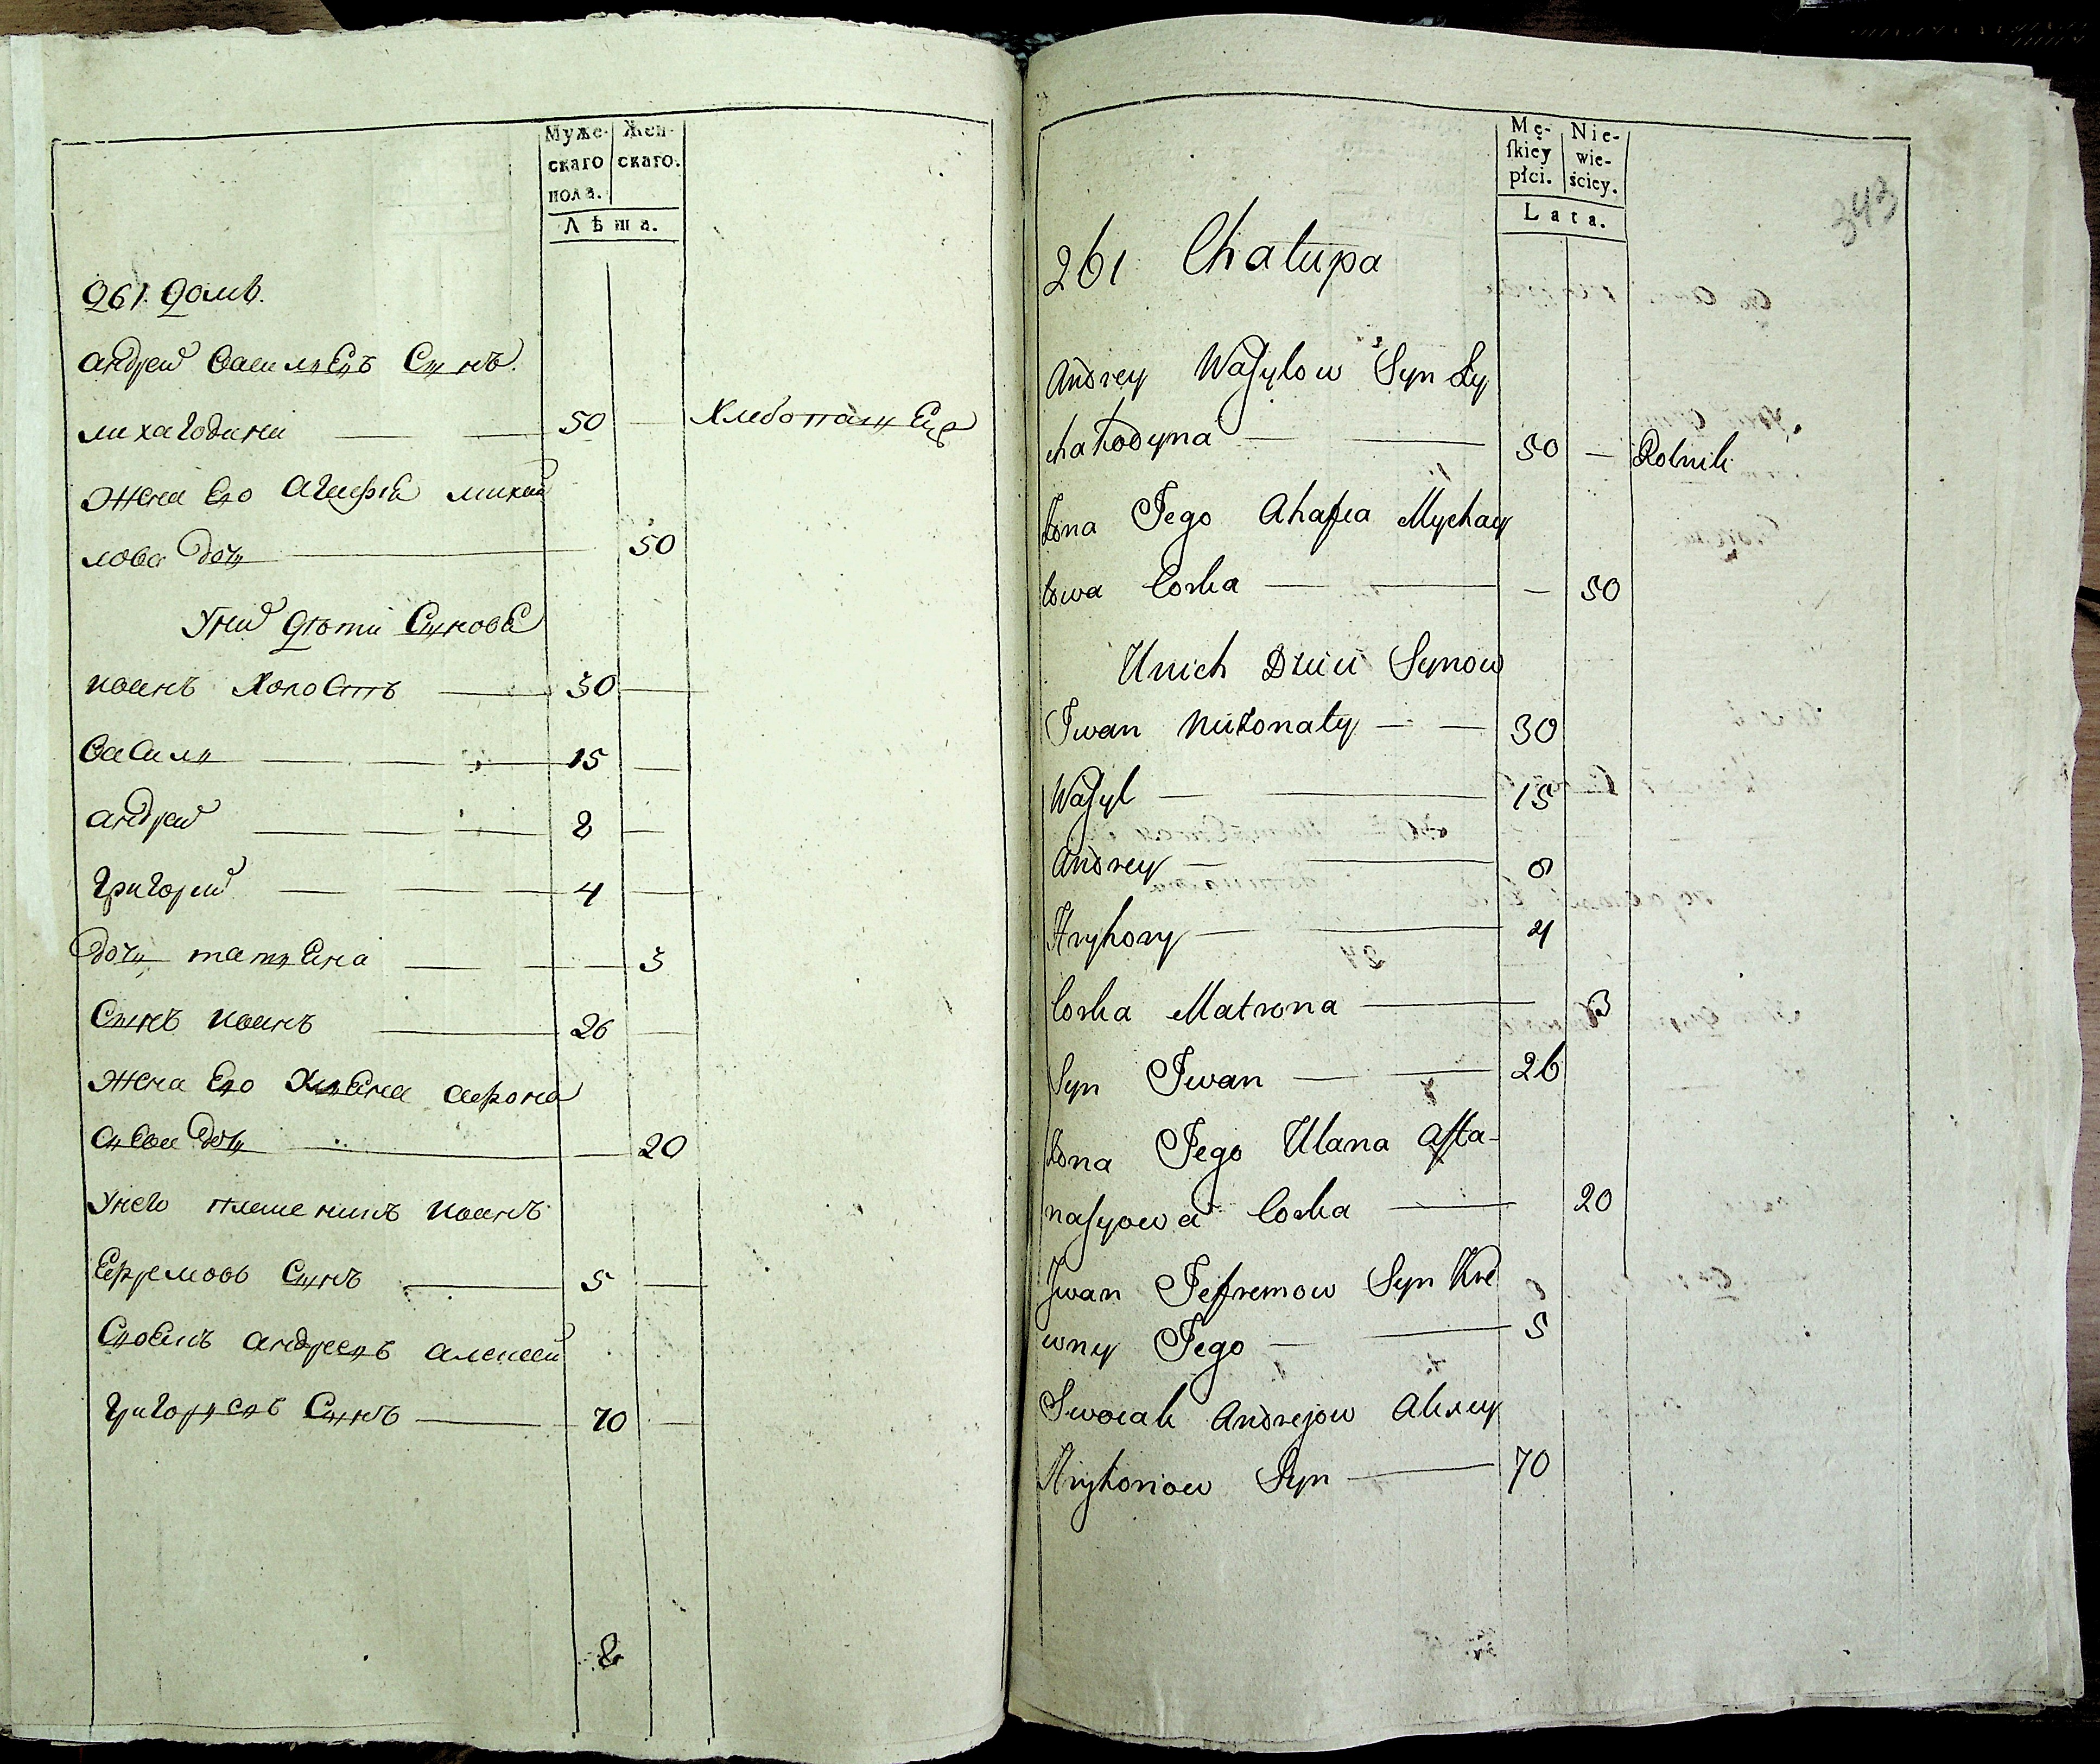 Муже-
скаго
пола.
Жен-
скаго.
Лѣта.
261. Домъ.
Андрей Васильевъ Сынъ.
лихагодина — — 50 — Хлебопашецъ
Жена Его Агафиа михай
лова дочь — 50
У них Дѣти Сыновѐ
иванъ Холостъ — 30 —
Василь — — — 15 —
андрей — — — 8 —
Григорей — — 4 —
дочь татьЕна — — — 3
Сынъ иванъ — 26 —
Жена Его Ульена афона
сьева дочь — — 20
У него племенникъ иванъ
Ефремовъ Сынъ — 5 —
Своякъ андреевъ алексей
Григорьевъ Сынъ — 70 —
8
Mę-
ſkiey
płci.
Nie-
wie-
ściey.
Lata.
343
261 Chałupa
Andrey Waſylow Syn Ly
chahodyna — — 50 — Rolnik
Żona Jego Ahafia Mychay
łowa Corka — — — 50
Unich Dzieci Synow
Iwan Nieżonaty — — 30
Waſyl — — 15
Andrey — — 8
Hryhory — 4
Corka Matrona — 3
Syn Iwan — — 26
Żona Jego Ulana Affa-
naſyowa Corka — 20
Iwan Jefremow Syn Kre
wny Jego — — 5
Swoiak Andrejow Alexey
Hryhoriow Syn — 70